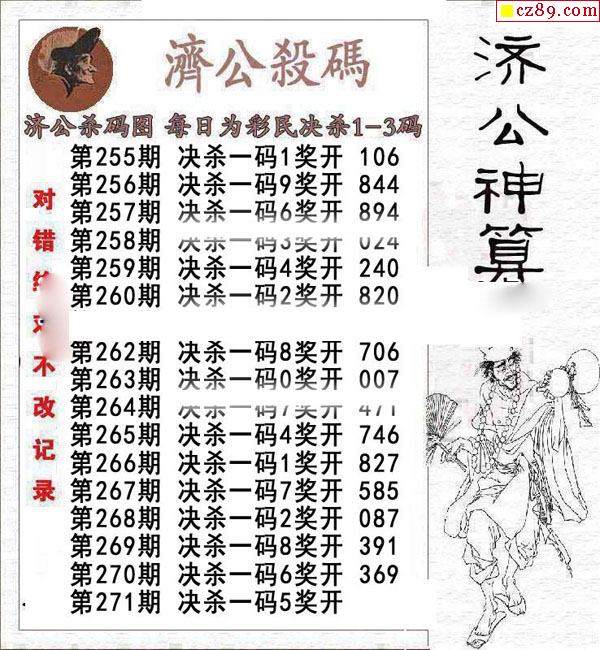 cz89.com
濟公殺碼
济公杀码图 每日为彩民决杀1-3码
第255期 决杀一码1奖开 106
第256期 决杀一码9奖开 844
第257期 决杀一码6奖开 894
第258期 决杀一码3奖开 024
第259期 决杀一码4奖开 240
第260期 决杀一码2奖开 820
第262期 决杀一码8奖开 706
第263期 决杀一码0奖开 007
第264期 决杀一码7奖开 471
第265期 决杀一码4奖开 746
第266期 决杀一码1奖开 827
第267期 决杀一码7奖开 585
第268期 决杀一码2奖开 087
第269期 决杀一码8奖开 391
第270期 决杀一码6奖开 369
第271期 决杀一码5奖开
对错
不改记录
济公神算